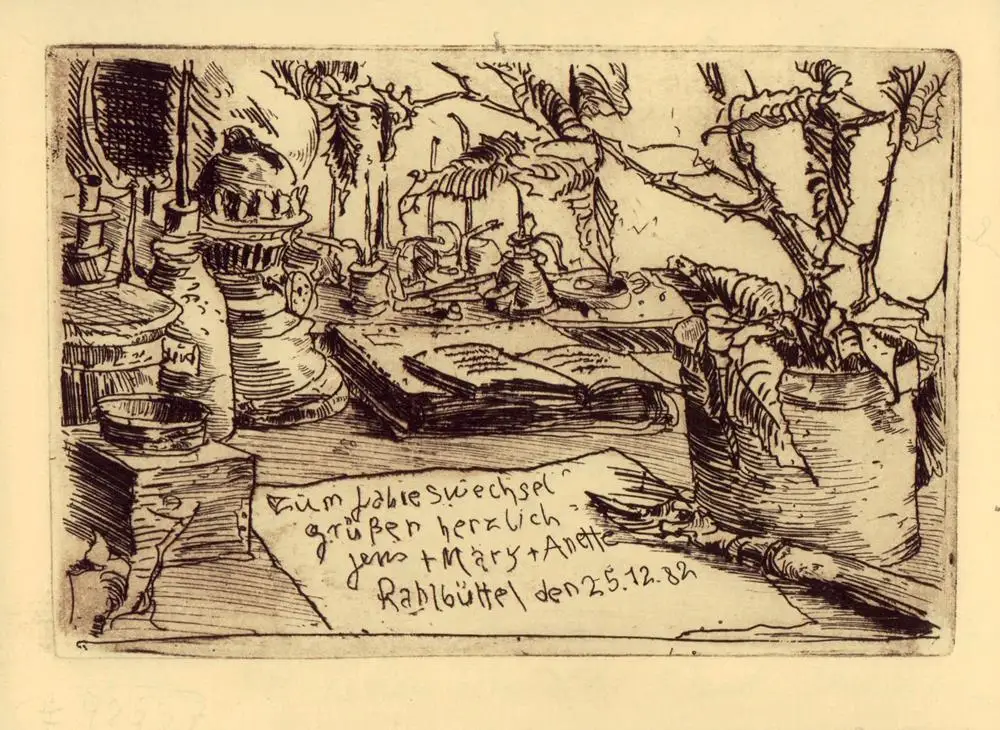 zum Jahreswechsel
grüßen herzlich
Jens + Märy + Anette
Rahlbüttel den 25.12.82